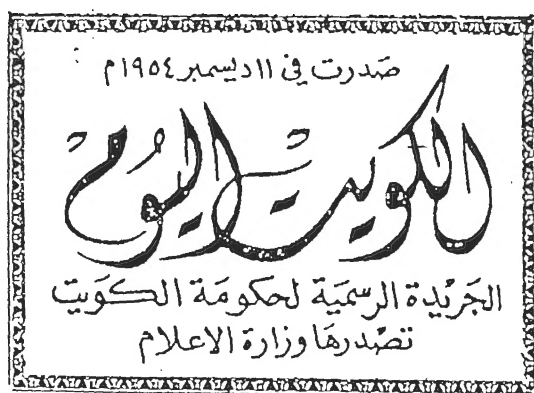 صدرت في ١١ ديسمبر ١٩٥٤م
الكويت اليوم
الجريدة الرسمية لحكومة الكويت
تصدرها وزارة الاعلام